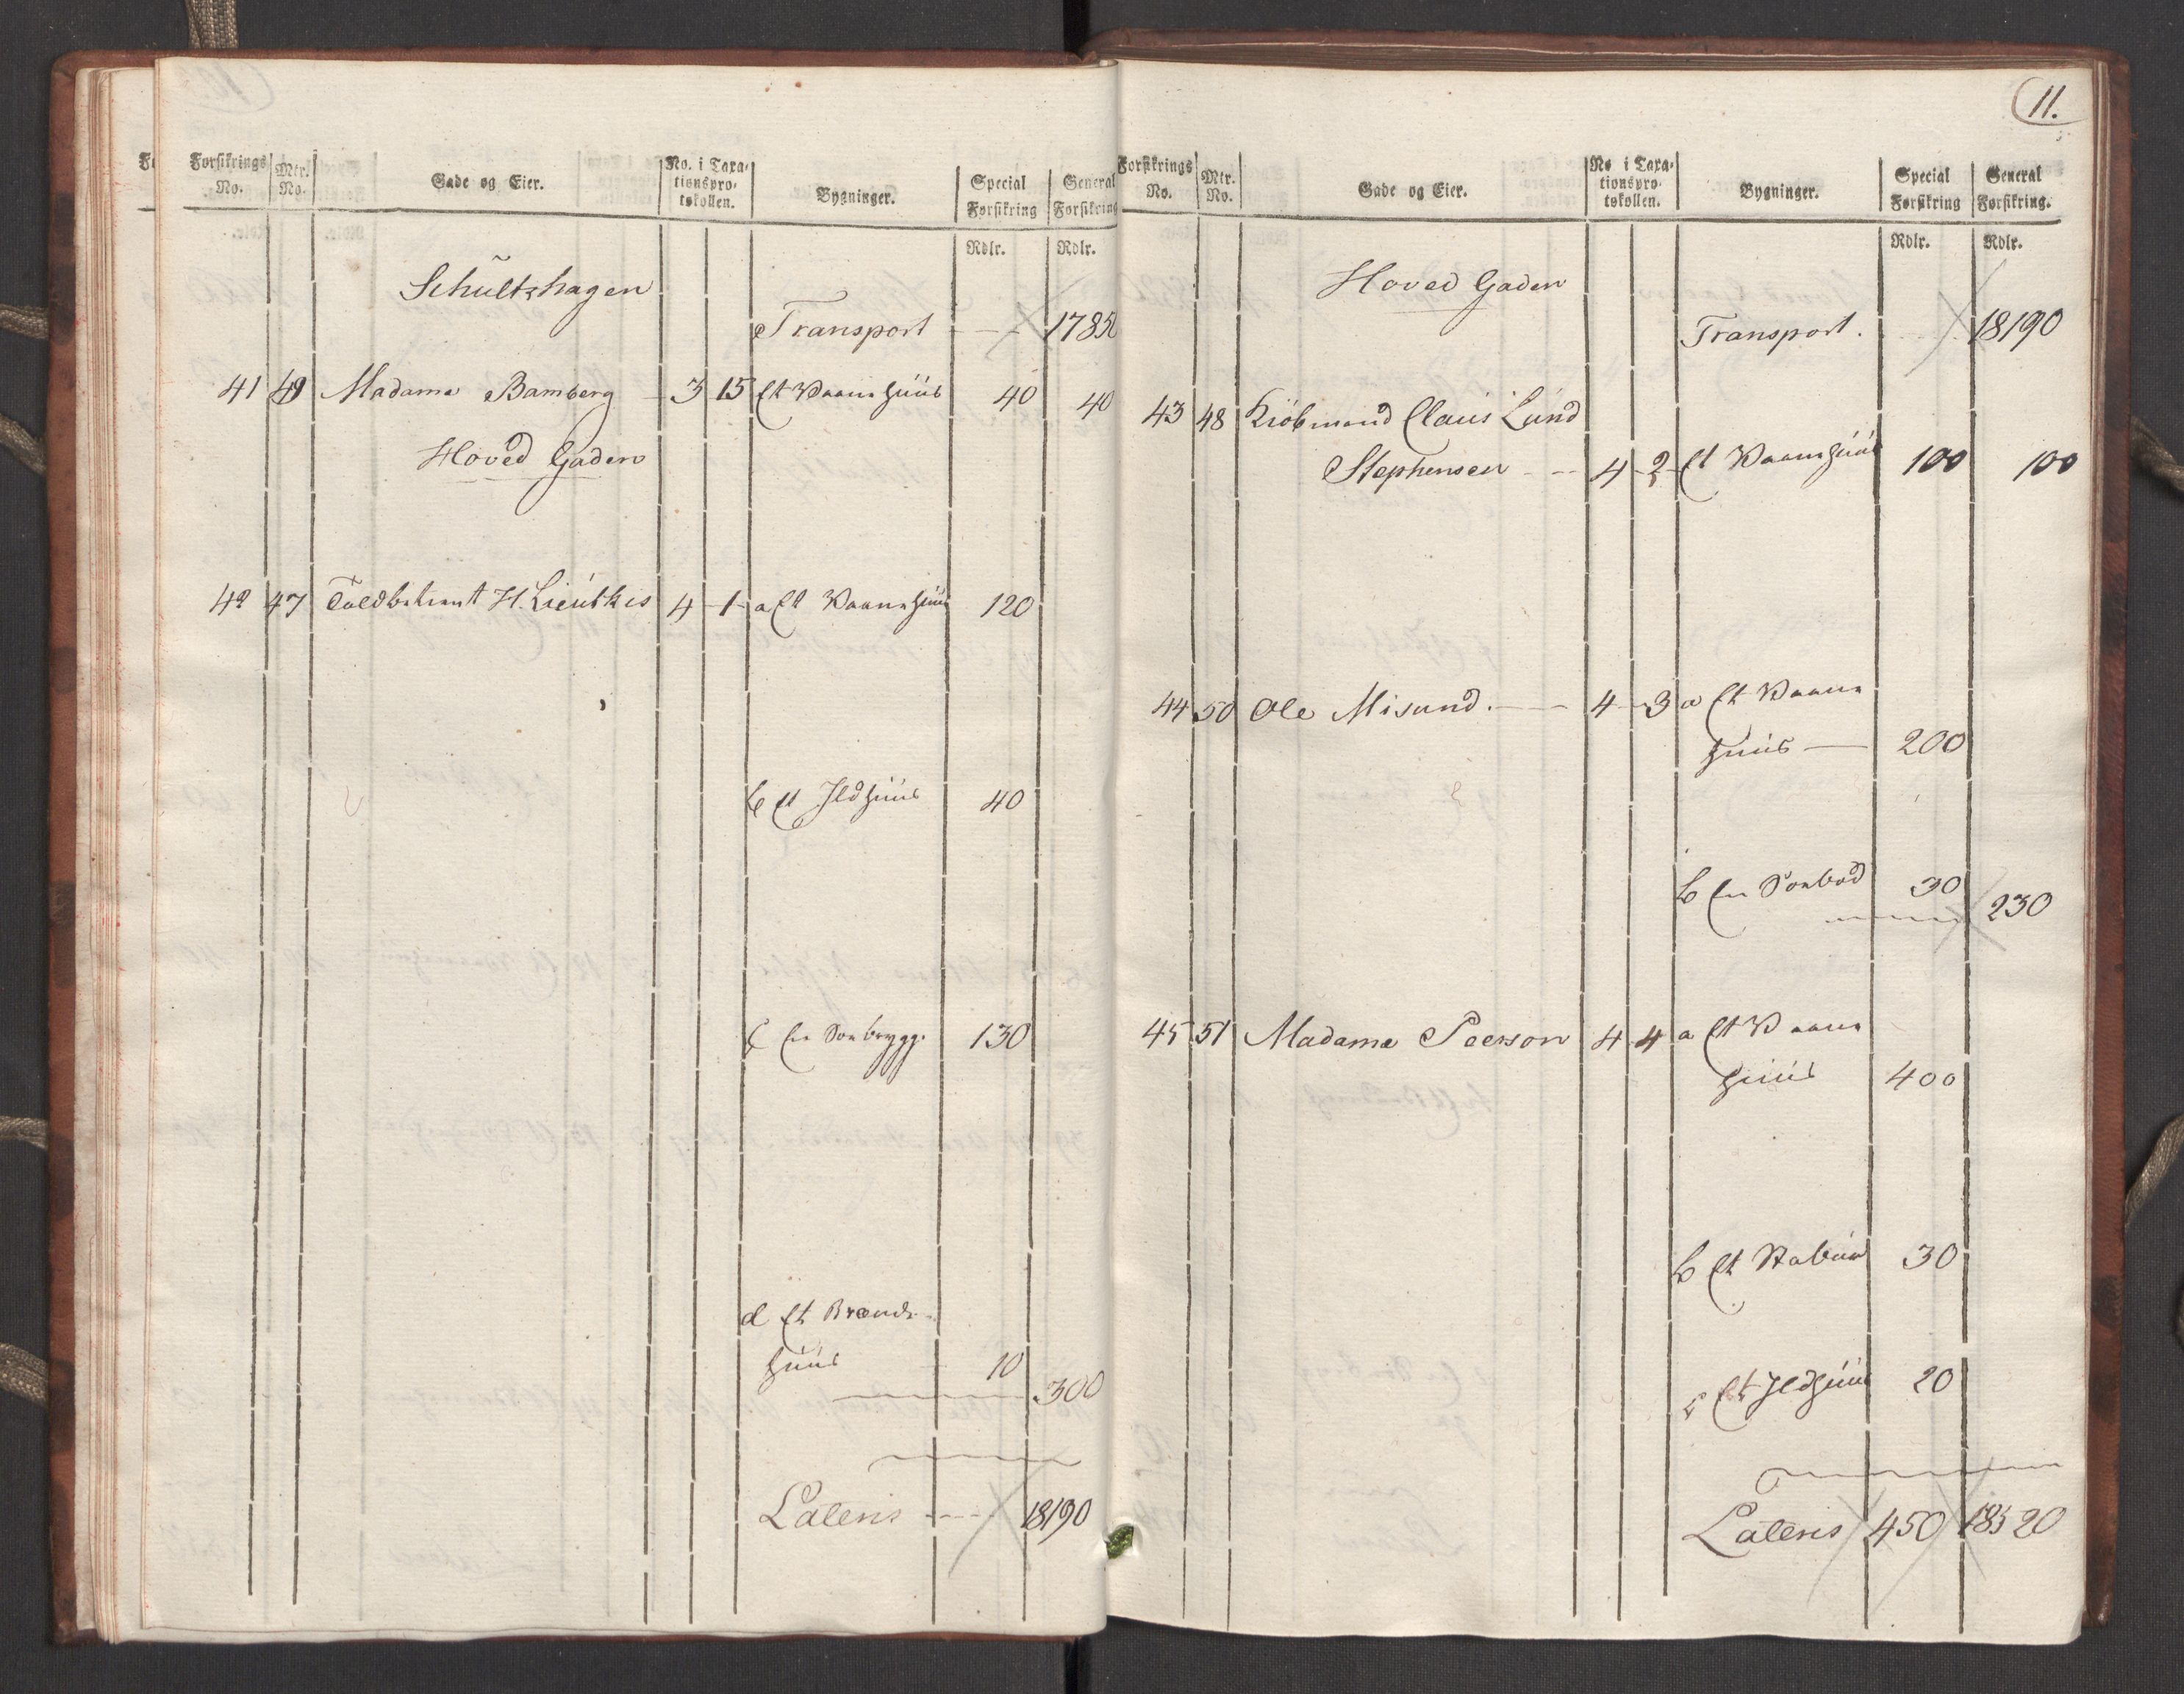 Forsikrings No. | Mtr. No. | Gade og Eier. | No. i Taxationsprotokollen. | Bygninger. | Special Forsikring | General Forsikring
Rdlr. Rdlr.
Schultzhagen
Transport - - - 1785
41 49 Madame Bamberg - 3 15 Et Vaanhuus 40 40
Hoved Gaden
42 47 Toldbetient H. Lieutkis 4 - 1 - a Et Vaanhuus 120
b Et Ildhuus 40
c En Søebrygg. 130
d Et Brænde
huus 10
300
Lateris - - - 18190
11.
Forsikrings No. | Mtr. No. | Gade og Eier. | No i Taxationsprotokollen. | Bygninger. | Special Forsikring | General Forsikring.
Rdlr. Rdlr.
Hoved Gaden
Transport. 18190
43 48 Kiöbmand Claus Lund
Stephensen - - 4 - 2 - Et Vaanhuus 100 100
44 50 Ole Misund. - 4 - 3 a Et Vaan
huus - 200
b En Søebod 30
230
45 51 Madame Peerson 4 4 a Et Vaan
huus 400
b Et Stabuur 30
c Et Ildhuus 20
Lateris 450 18520